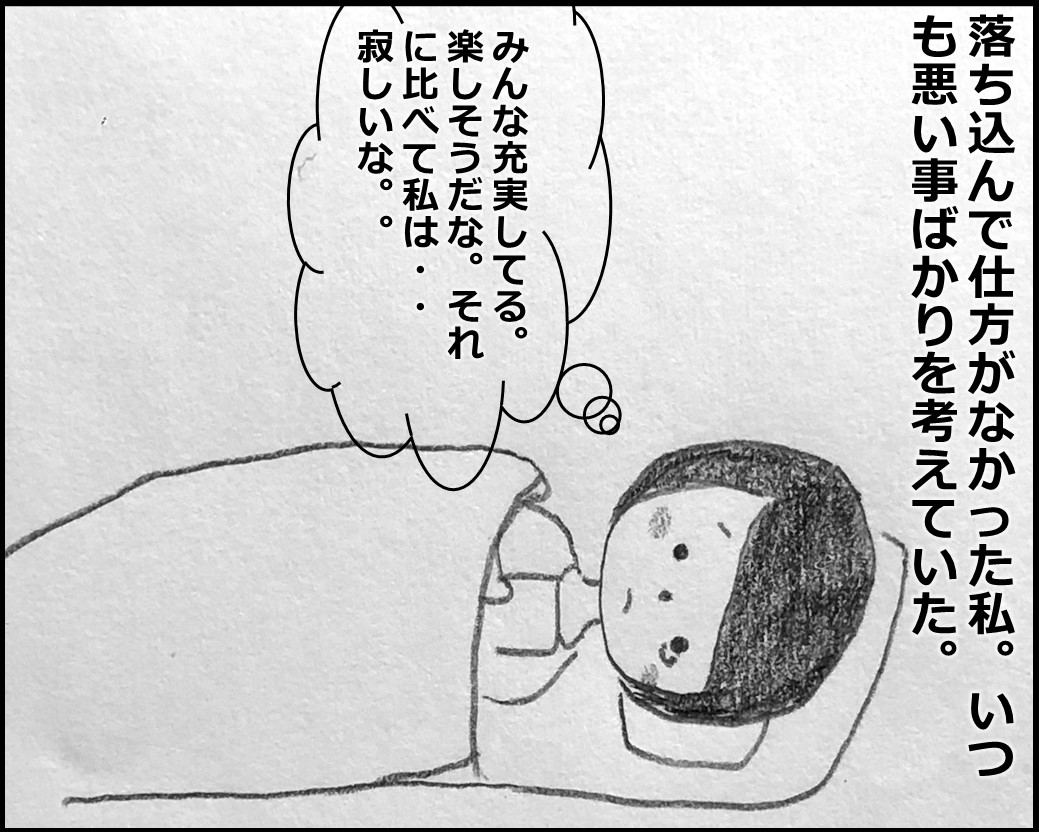 落ち込んで仕方がなかった私。 いつ
も悪い事ばかりを考えていた。
みんな充実してる。
楽しそうだな。それ
に比べて私は・・
寂しいな。。